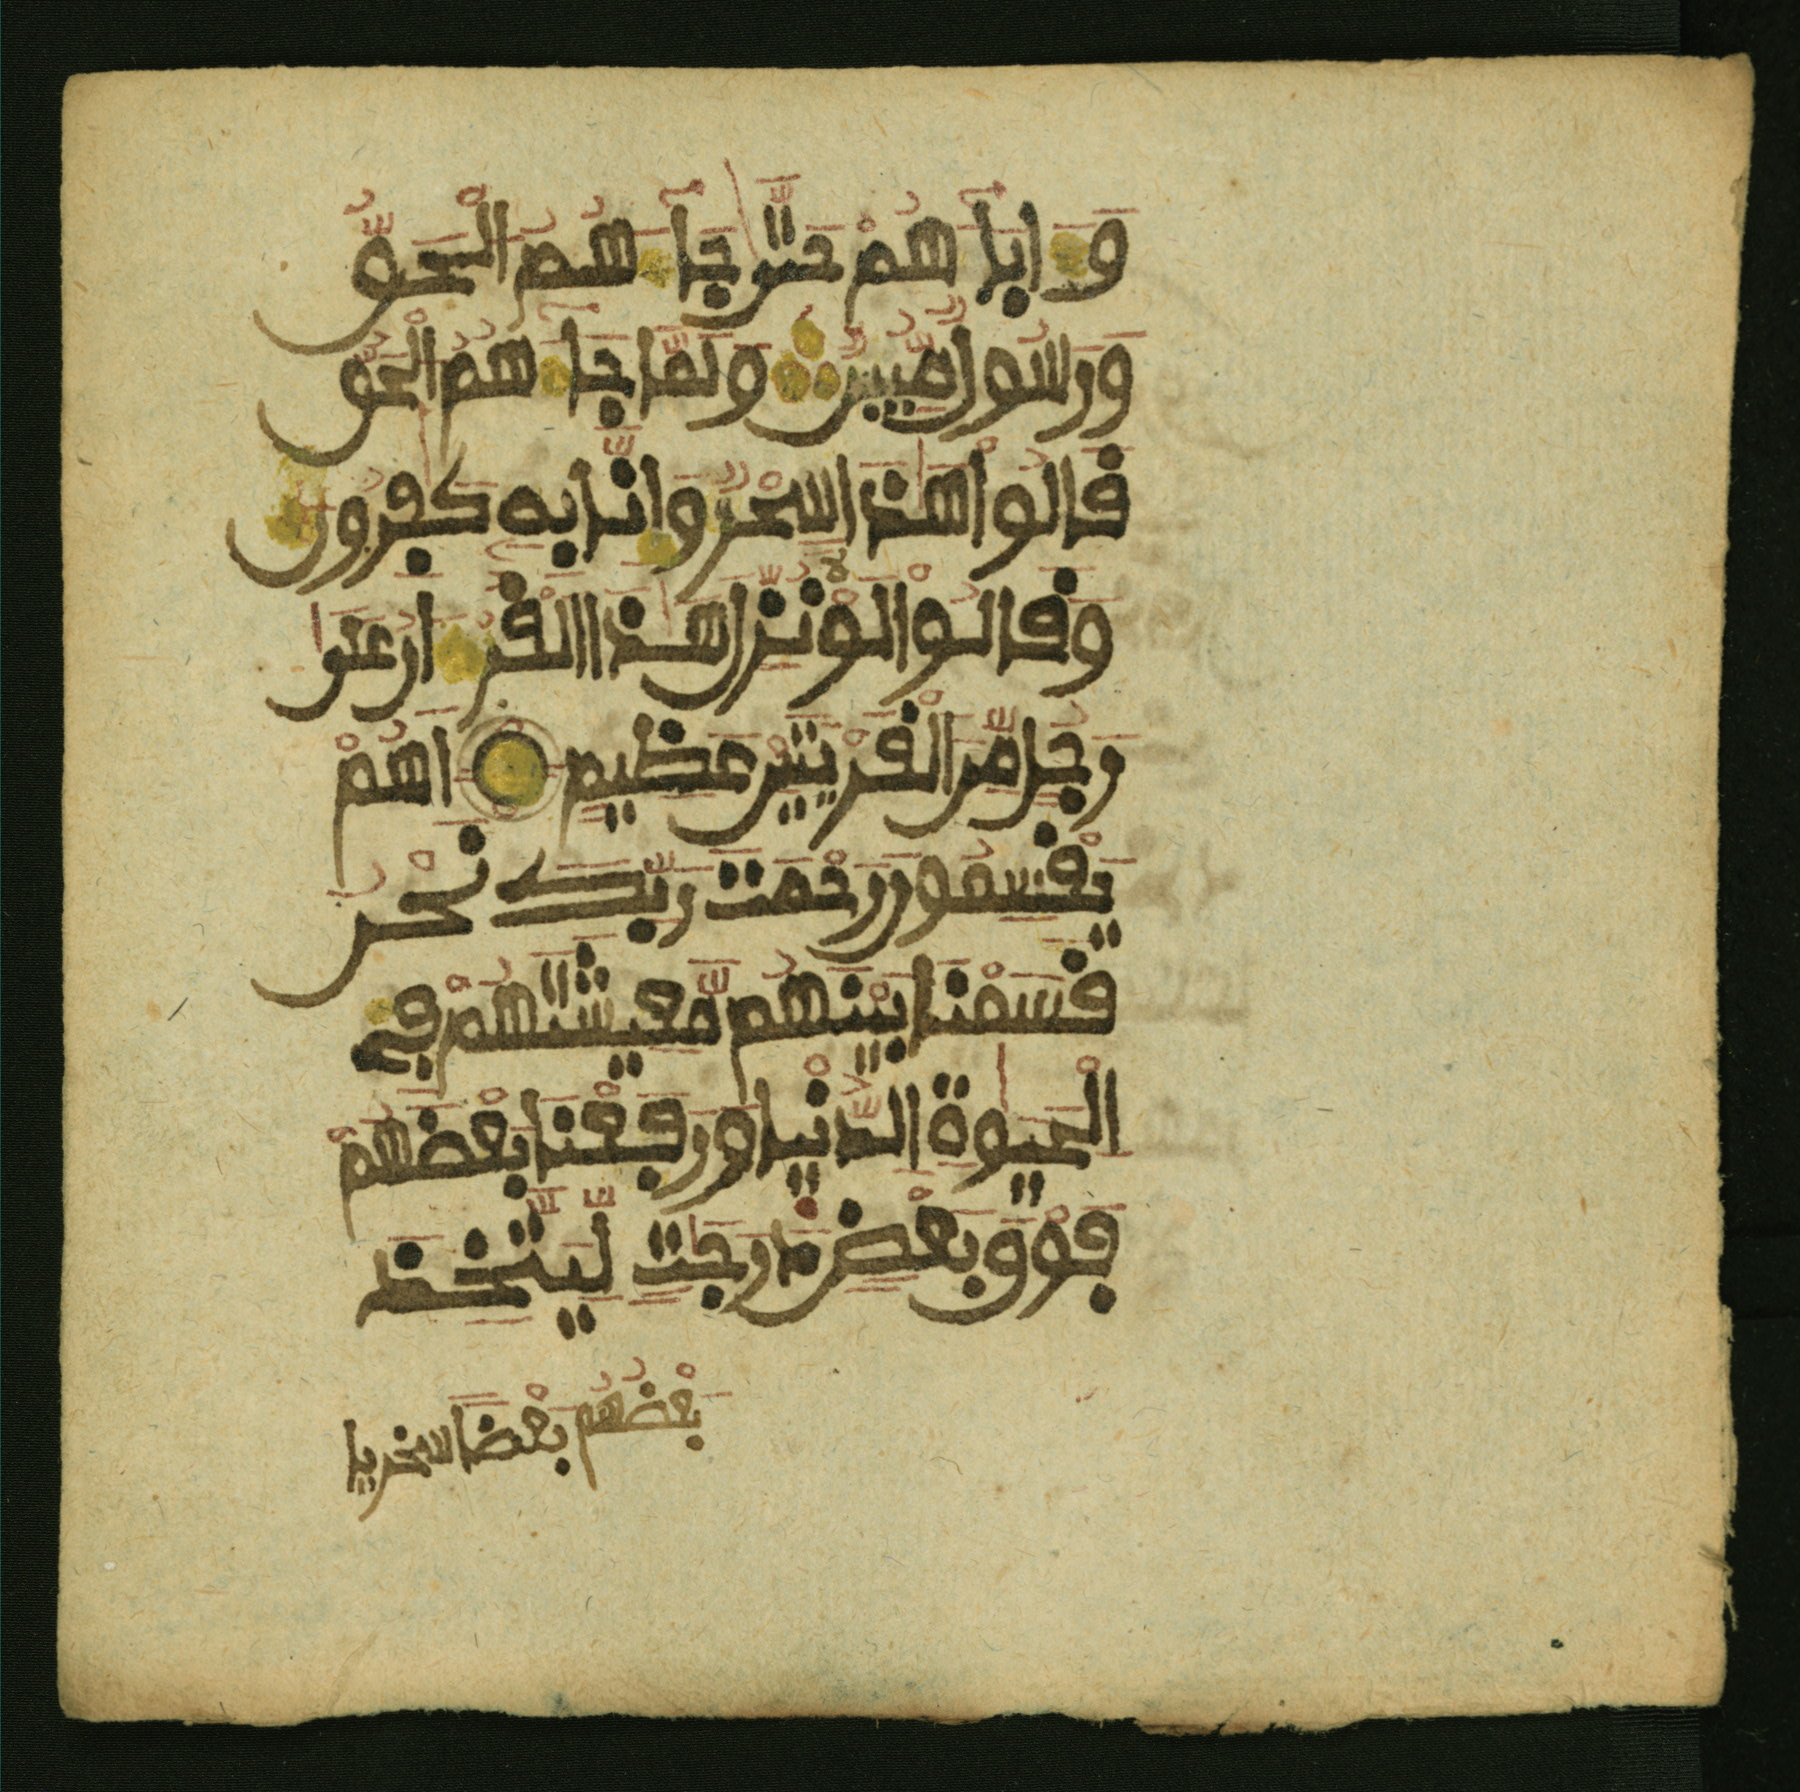 وَءَابَآءَهُمْ حَتَّىٰ جَآءَهُمُ الْحَقُّ
وَرَسُولٌ مُّبِينٌ وَلَمَّا جَآءَهُمُ الْحَقُّ
قَالُوا هَٰذَا سِحْرٌ وَإِنَّا بِهِ كَٰفِرُونَ
وَقَالُوا لَوْلَا نُزِّلَ هَٰذَا الْقُرْءَانُ عَلَىٰ
رَجُلٍ مِّنَ الْقَرْيَتَيْنِ عَظِيمٍ أَهُمْ
يَقْسِمُونَ رَحْمَتَ رَبِّكَ نَحْنُ
قَسَمْنَا بَيْنَهُم مَّعِيشَتَهُمْ فِي
الْحَيَوٰةِ الدُّنْيَا وَرَفَعْنَا بَعْضَهُمْ
فَوْقَ بَعْضٍ دَرَجَٰتٍ لِّيَتَّخِذَ
بَعْضُهُم بَعْضًا سُخْرِيًّا